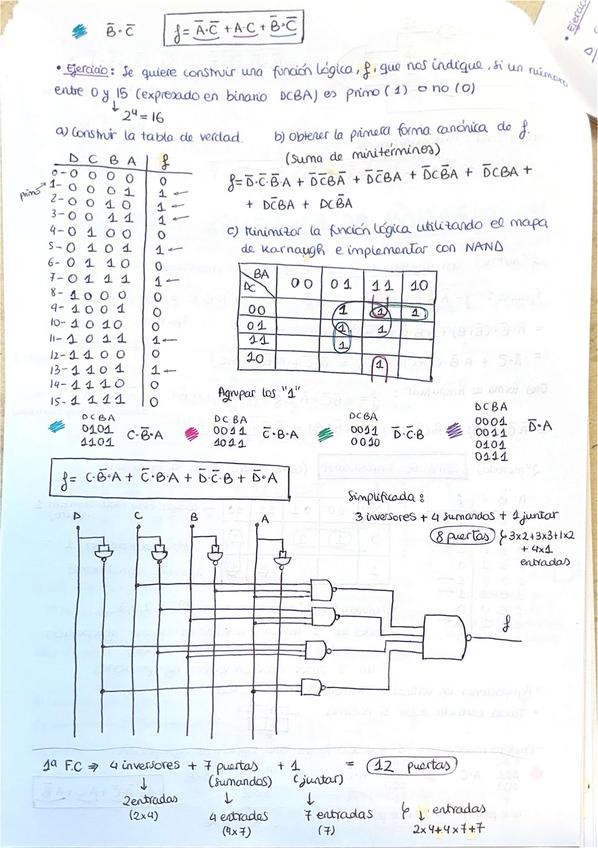 B̅·C̅   f = A̅·C̅ + A·C + B̅·C̅
• Ejercicio: Se quiere construir una función lógica, f, que nos indique, si un número
entre 0 y 15 (expresado en binario DCBA) es primo (1) o no (0)
↓ 2⁴ = 16
a) Construir la tabla de verdad.   b) Obtener la primera forma canónica de f.
(suma de minitérminos)
D C B A | f
0- 0 0 0 0 | 0
primo 1- 0 0 0 1 | 1 ←
2- 0 0 1 0 | 1 ←
3- 0 0 1 1 | 1 ←
4- 0 1 0 0 | 0
5- 0 1 0 1 | 1 ←
6- 0 1 1 0 | 0
7- 0 1 1 1 | 1 ←
8- 1 0 0 0 | 0
9- 1 0 0 1 | 0
10- 1 0 1 0 | 0
11- 1 0 1 1 | 1 ←
12- 1 1 0 0 | 0
13- 1 1 0 1 | 1 ←
14- 1 1 1 0 | 0
15- 1 1 1 1 | 0
f = D̅·C̅·B̅·A + D̅C̅BA̅ + D̅C̅BA + D̅CB̅A + D̅CBA +
+ DC̅BA + DCB̅A
c) Minimizar la función lógica utilizando el mapa
de Karnaugh e implementar con NAND
BA
DC | 00 | 01 | 11 | 10
00 | | 1 | 1 | 1
01 | | 1 | 1 |
11 | | 1 | |
10 | | | 1 |
Agrupar los "1"
DCBA
0101
1101   C·B̅·A
DCBA
0011
1011   C̅·B·A
DCBA
0011
0010   D̅·C̅·B
DCBA
0001
0011
0101
0111   D̅·A
f = C·B̅·A + C̅·B·A + D̅·C̅·B + D̅·A
Simplificada:
3 inversores + 4 sumandos + 1 juntar
8 puertas   3x2+3x3+1x2
+ 4x1
entradas
D   C   B   A
f
1ª F.C ⇒ 4 inversores + 7 puertas + 1 = 12 puertas
(sumandos)   (juntar)
↓   ↓   ↓
2 entradas   4 entradas   7 entradas   ↓ entradas
(2x4)   (4x7)   (7)   2x4+4x7+7